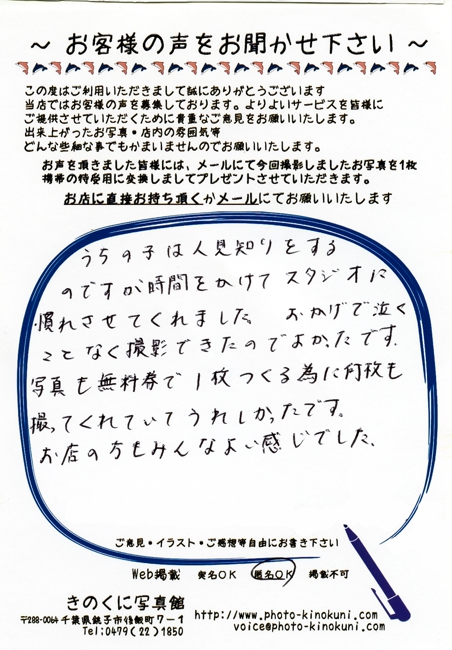 ～ お客様の声をお聞かせ下さい ～
この度はご利用いただきまして誠にありがとうございます
当店ではお客様の声を募集しております。よりよいサービスを皆様に
ご提供させていただくために貴重なご意見をお願いいたします。
出来上がったお写真・店内の雰囲気等
どんな些細な事でもかまいませんのでお願いいたします。
お声を頂きました皆様には、メールにて今回撮影しましたお写真を1枚
携帯の待受用に変換しましてプレゼントさせていただきます。
お店に直接お持ち頂くかメールにてお願いいたします
うちの子は人見知りをする
のですが時間をかけてスタジオに
慣れさせてくれました。 おかげで泣く
ことなく撮影できたのでよかったです.
写真も無料券で1枚つくる為に何枚も
撮ってくれていてうれしかったです。
お店の方もみんなよい感じでした.
ご意見・イラスト・ご感想等自由にお書き下さい
Web掲載 実名OK 匿名OK 掲載不可
きのくに写真館
〒288-0064 千葉県銚子市後飯町7-1
Tel:0479(22)1850
http://www.photo-kinokuni.com/
voice@photo-kinokuni.com